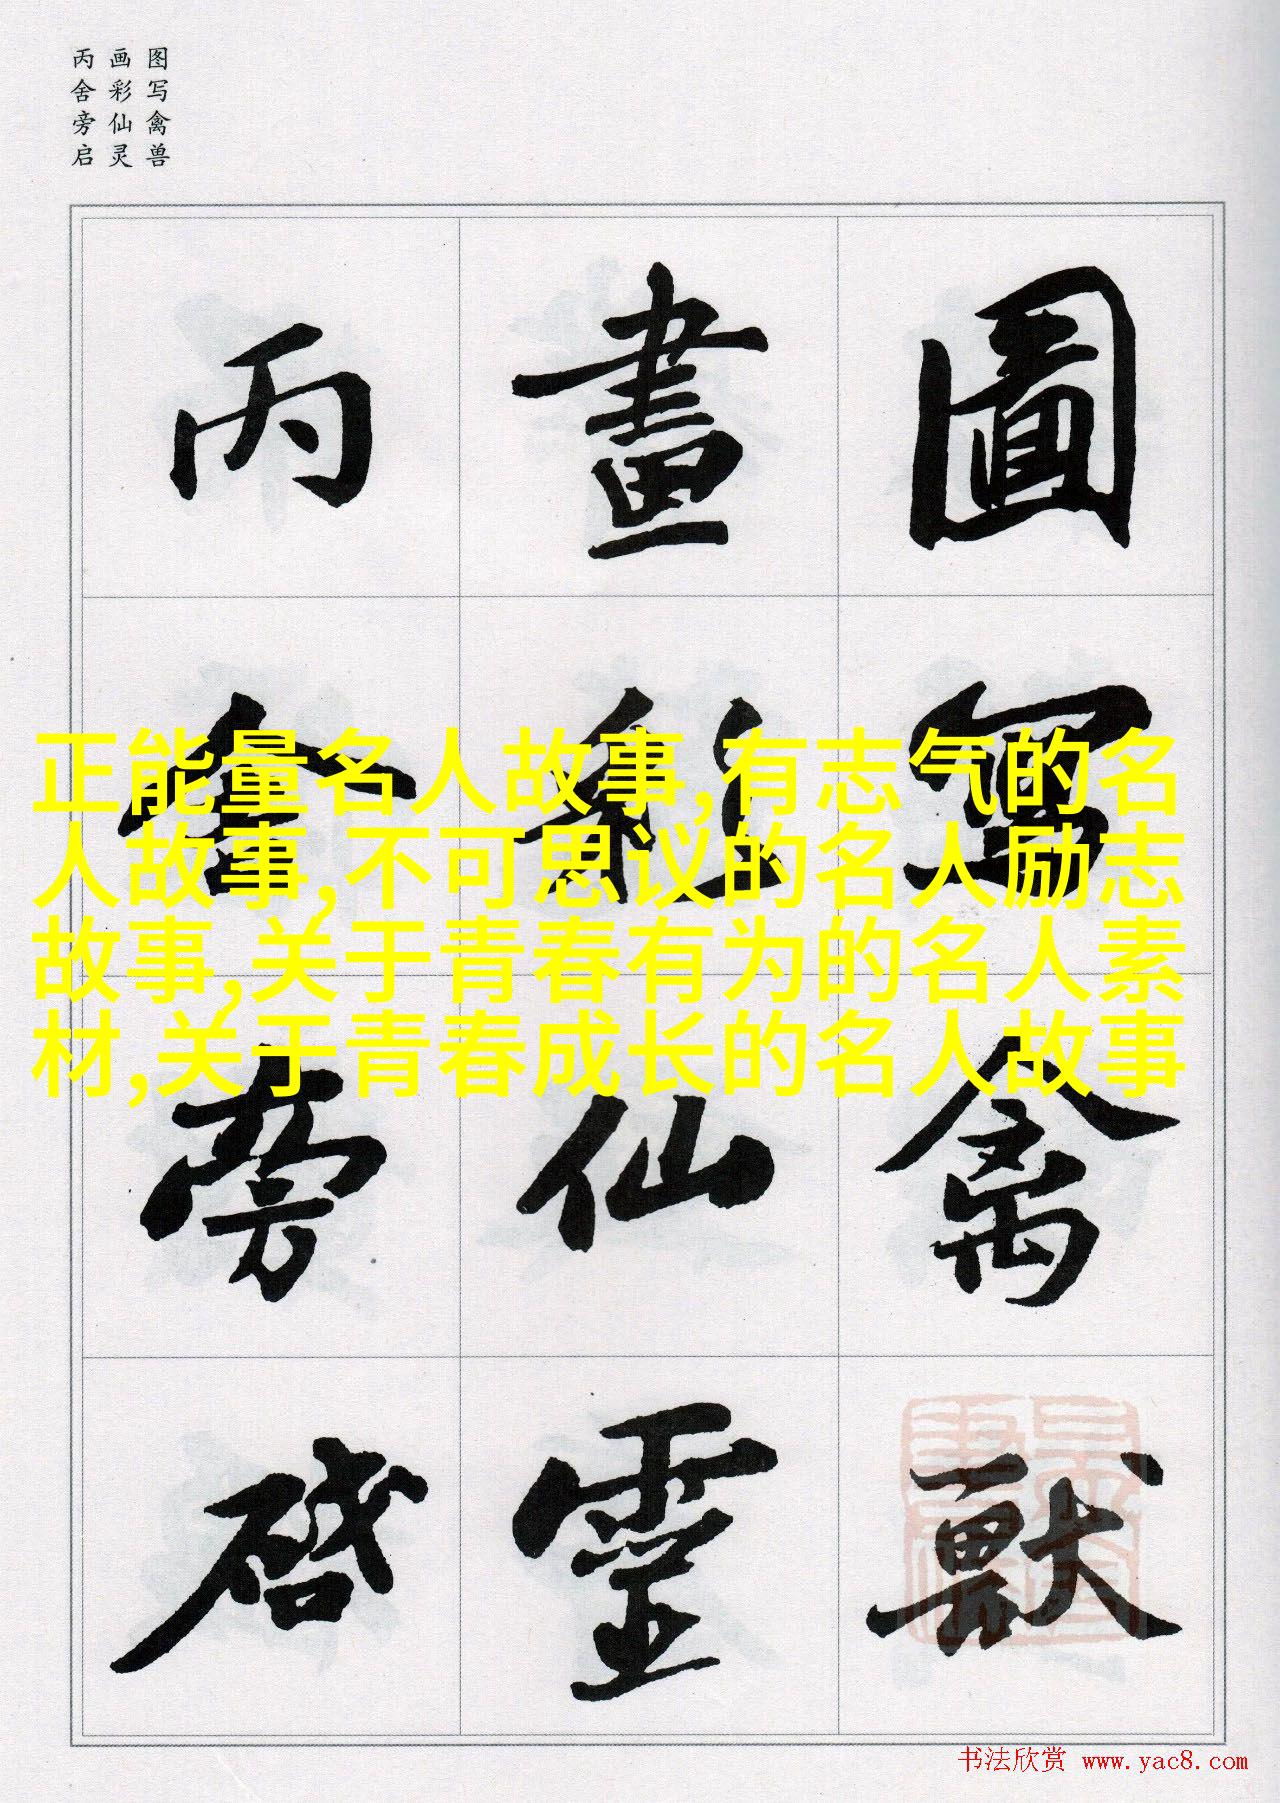 图写禽兽
画彩仙灵
丙舍旁启
圖寫禽獸
畫彩仙靈
丙舍旁啓
正能量名人故事,有志气的名
人故事,不可思议的名人励志
故事,关于青春有为的名人素
材,关于青春成长的名人故事
书法欣赏 www.yac8.com